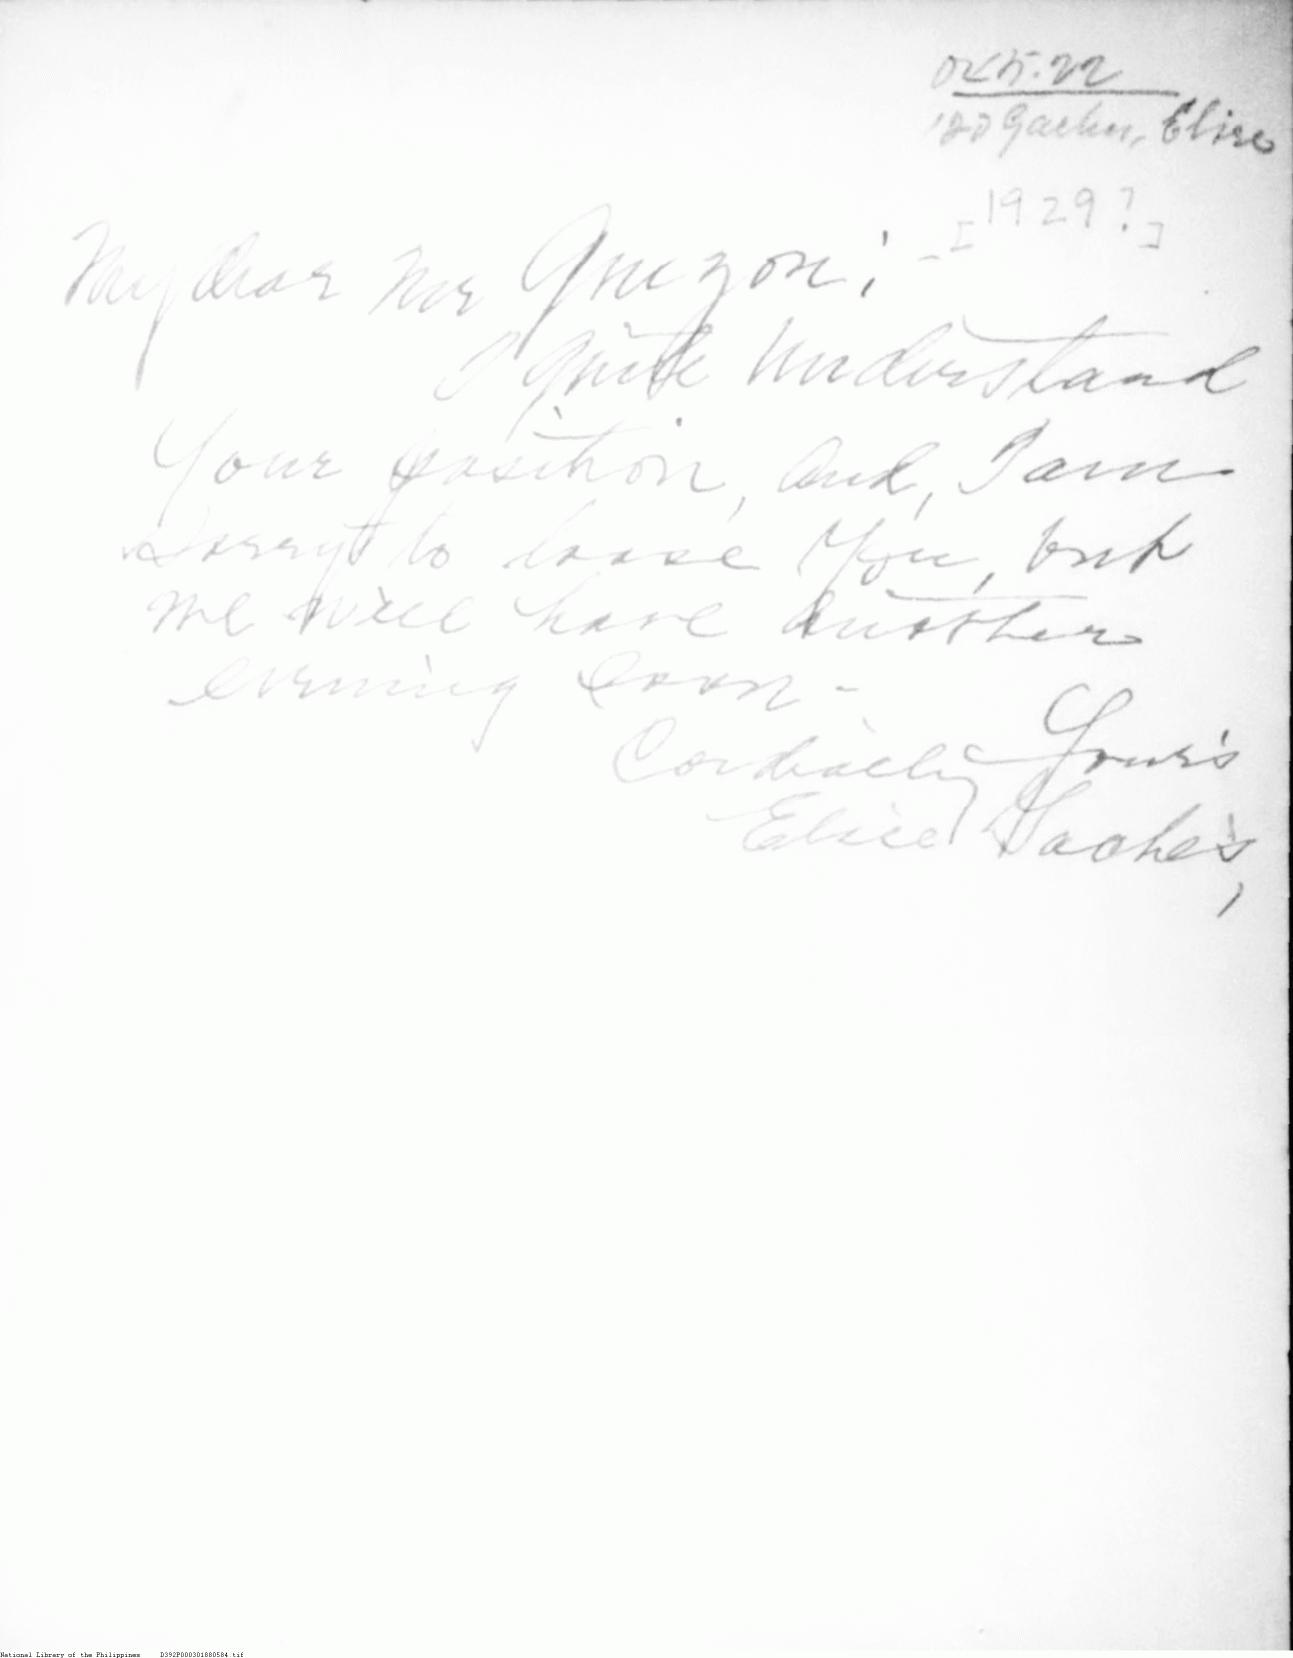 [1929?]
My dear Mr Quezon:
I quite understand
Your position, and, I am
Sorry to loose You, but
we will have another
evening soon -
Cordially Your's
Elise
National Library of the Philippines D392P000301880584.tif